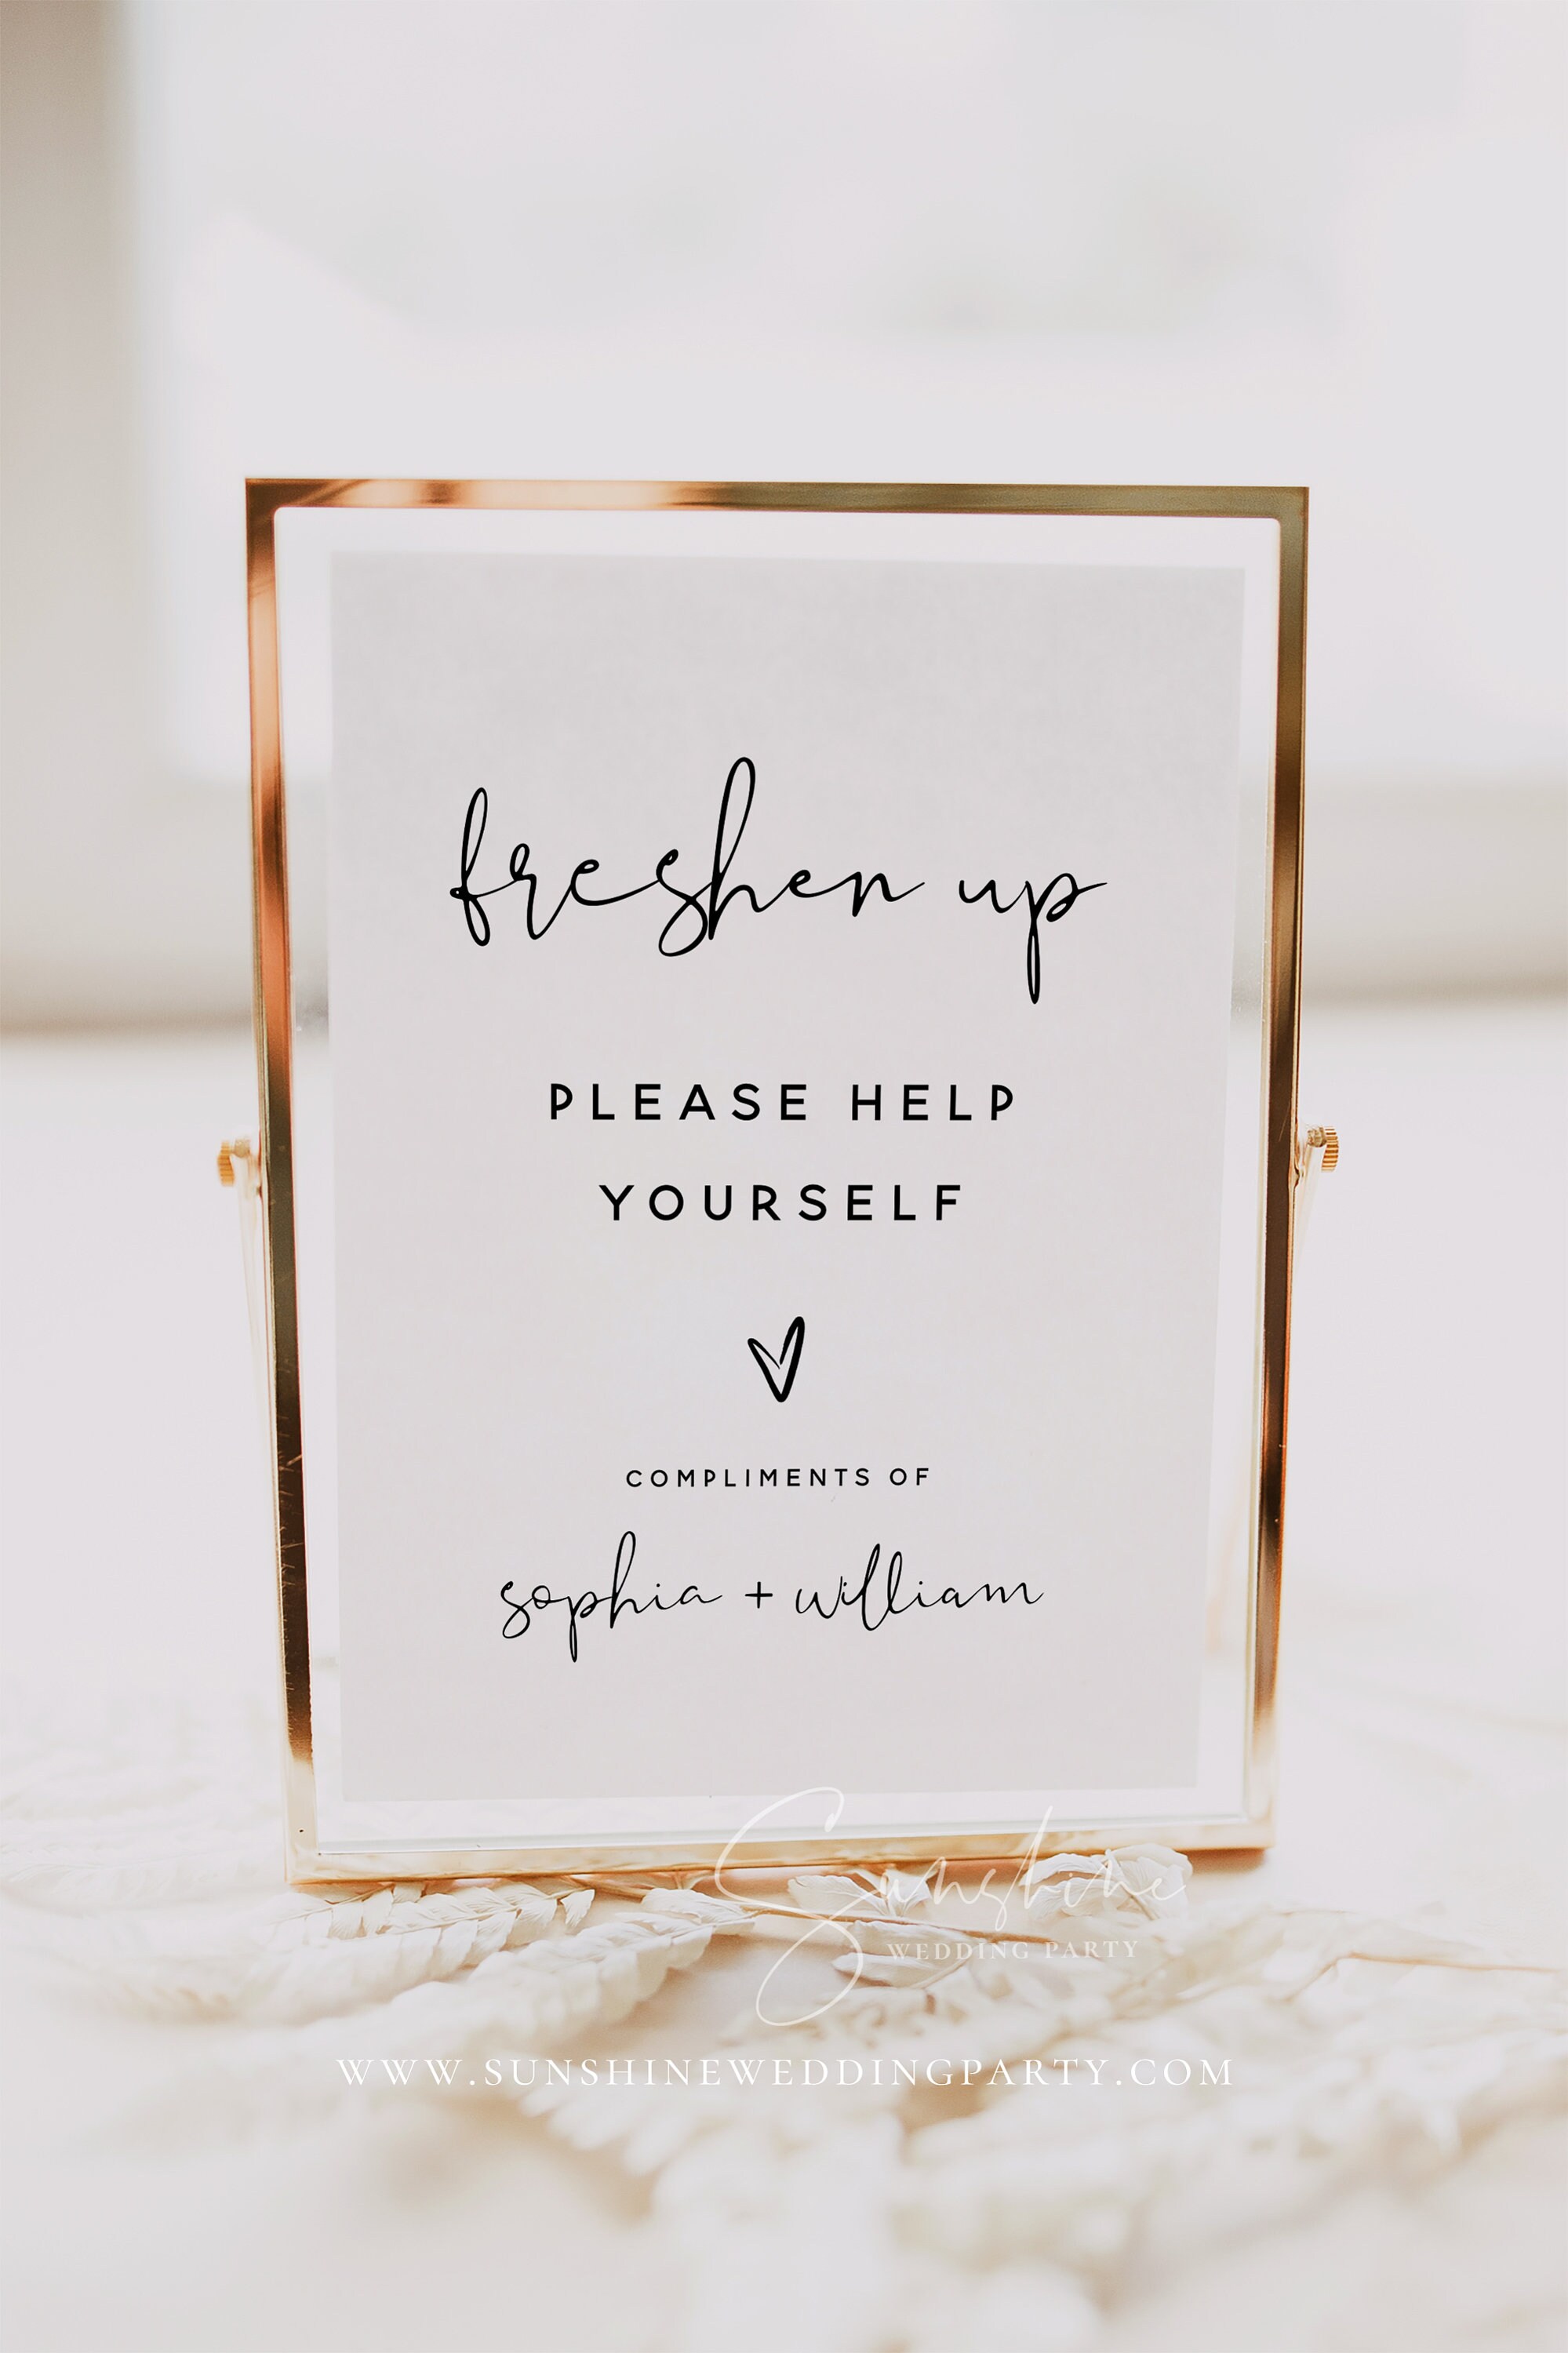 freshen up
PLEASE HELP
YOURSELF
COMPLIMENTS OF
sophia + william
Sunshine
WEDDING PARTY
WWW.SUNSHINEWEDDINGPARTY.COM